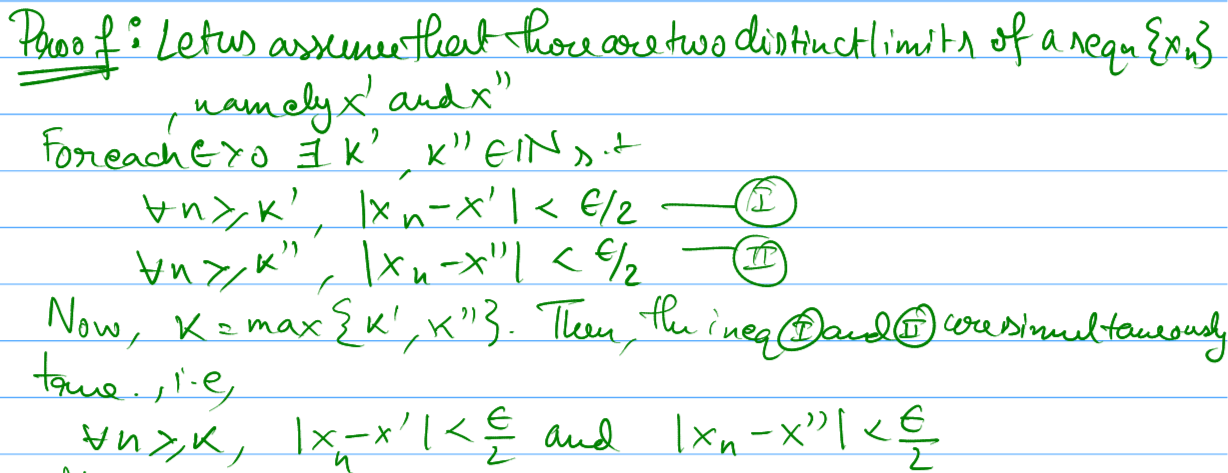 Proof: Let us assume that there are two distinct limits of a seqn {xn}
, namely x' and x"
For each ϵ>0 ∃ K', K" ∈ IN s.t
∀n≥K', |xn-x'| < ϵ/2 — I
∀n≥K", |xn-x"| < ϵ/2 — II
Now, K = max{K', K"}. Then, the ineq I and II are simultaneously
true., i.e,
∀n≥K, |xn-x'| < ϵ/2 and |xn-x"| < ϵ/2